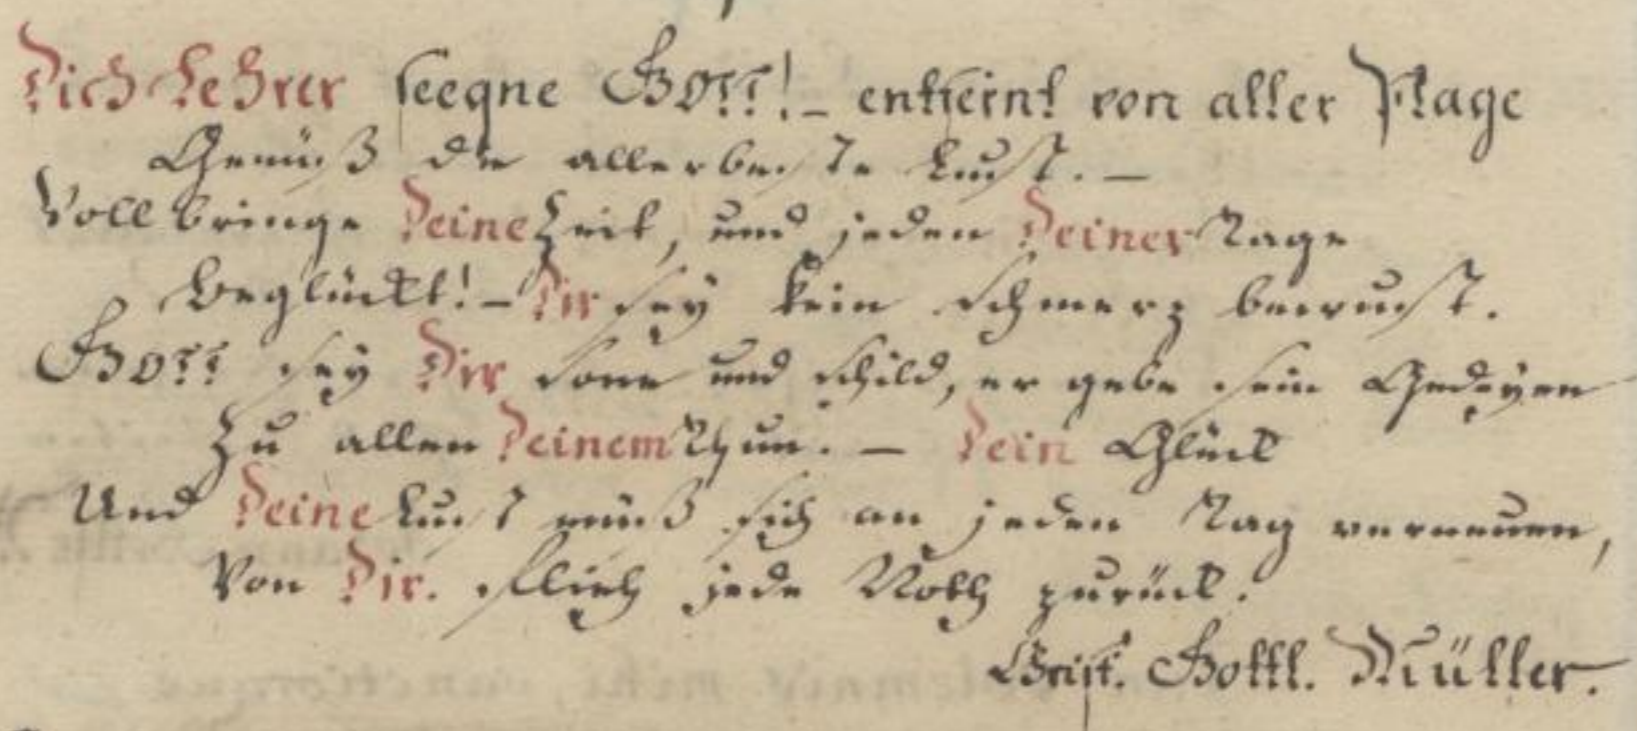 Dich Lehrer seegne Gott! – entfernt von aller Plage
Genüß die allerbeste Lust. –
Vollbringe Deine Zeit, und jeden Deiner Tage
Beglückt! – Dir sey kein Schmerz bewust.
Gott sey Dir Sone und Schild, er gebe sein Gedeyen
Zu allen Deinem Thun. – Dein Glück
Und Deine Lust müß sich an jeden Tag verneuen,
Von Dir. flieh jede Noth zurück.
Christ. Gottl. Müller.